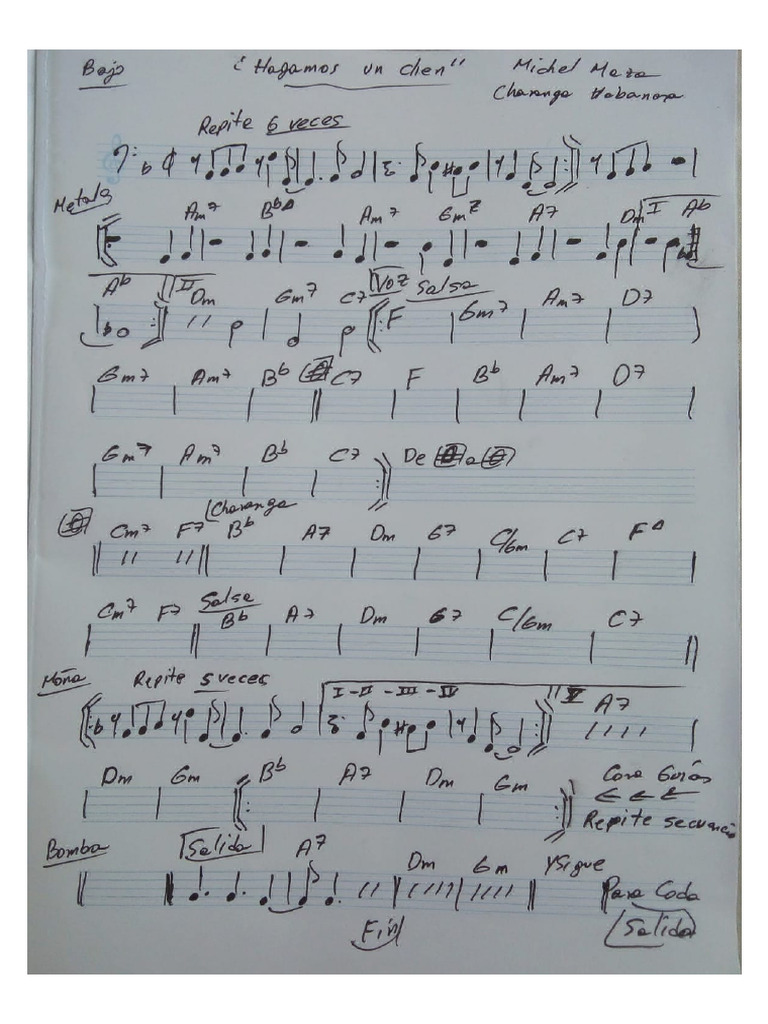 Bajo "Hagamos un chen" Michel Maza
Charanga Habanera
Repite 6 veces
Metales
Am7 Bb△ Am7 Gm7 A7 Dm I Ab
Ab II Dm Gm7 C7 Voz Salsa F Gm7 Am7 D7
Gm7 Am7 Bb C7 F Bb Am7 D7
Gm7 Am7 Bb C7 De a
Charanga
Cm7 F7 Bb A7 Dm G7 C/Gm C7 F△
Salsa
Cm7 F7 Bb A7 Dm G7 C/Gm C7
Moña Repite 5 veces I - II - III - IV V A7
Dm Gm Bb A7 Dm Gm Coro Guías
Repite secuencia
Bomba Salida A7 Dm Gm y Sigue
Para Coda
Fin Salida